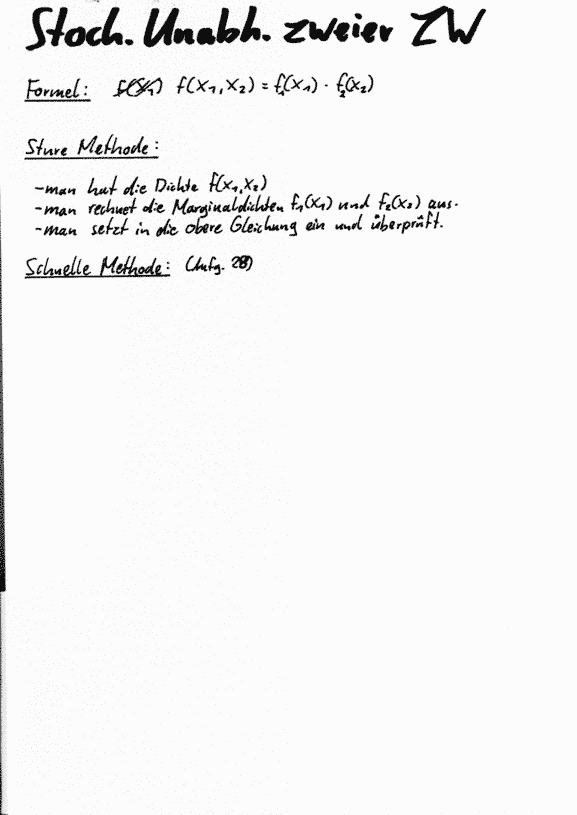 Stoch. Unabh. zweier ZW
Formel: f(x₁,x₂) = f₁(x₁) · f₂(x₂)
Sture Methode:
-man hat die Dichte f(x₁,x₂)
-man rechnet die Marginaldichten f₁(x₁) und f₂(x₂) aus.
-man setzt in die obere Gleichung ein und überprüft.
Schnelle Methode: (Aufg. 28)